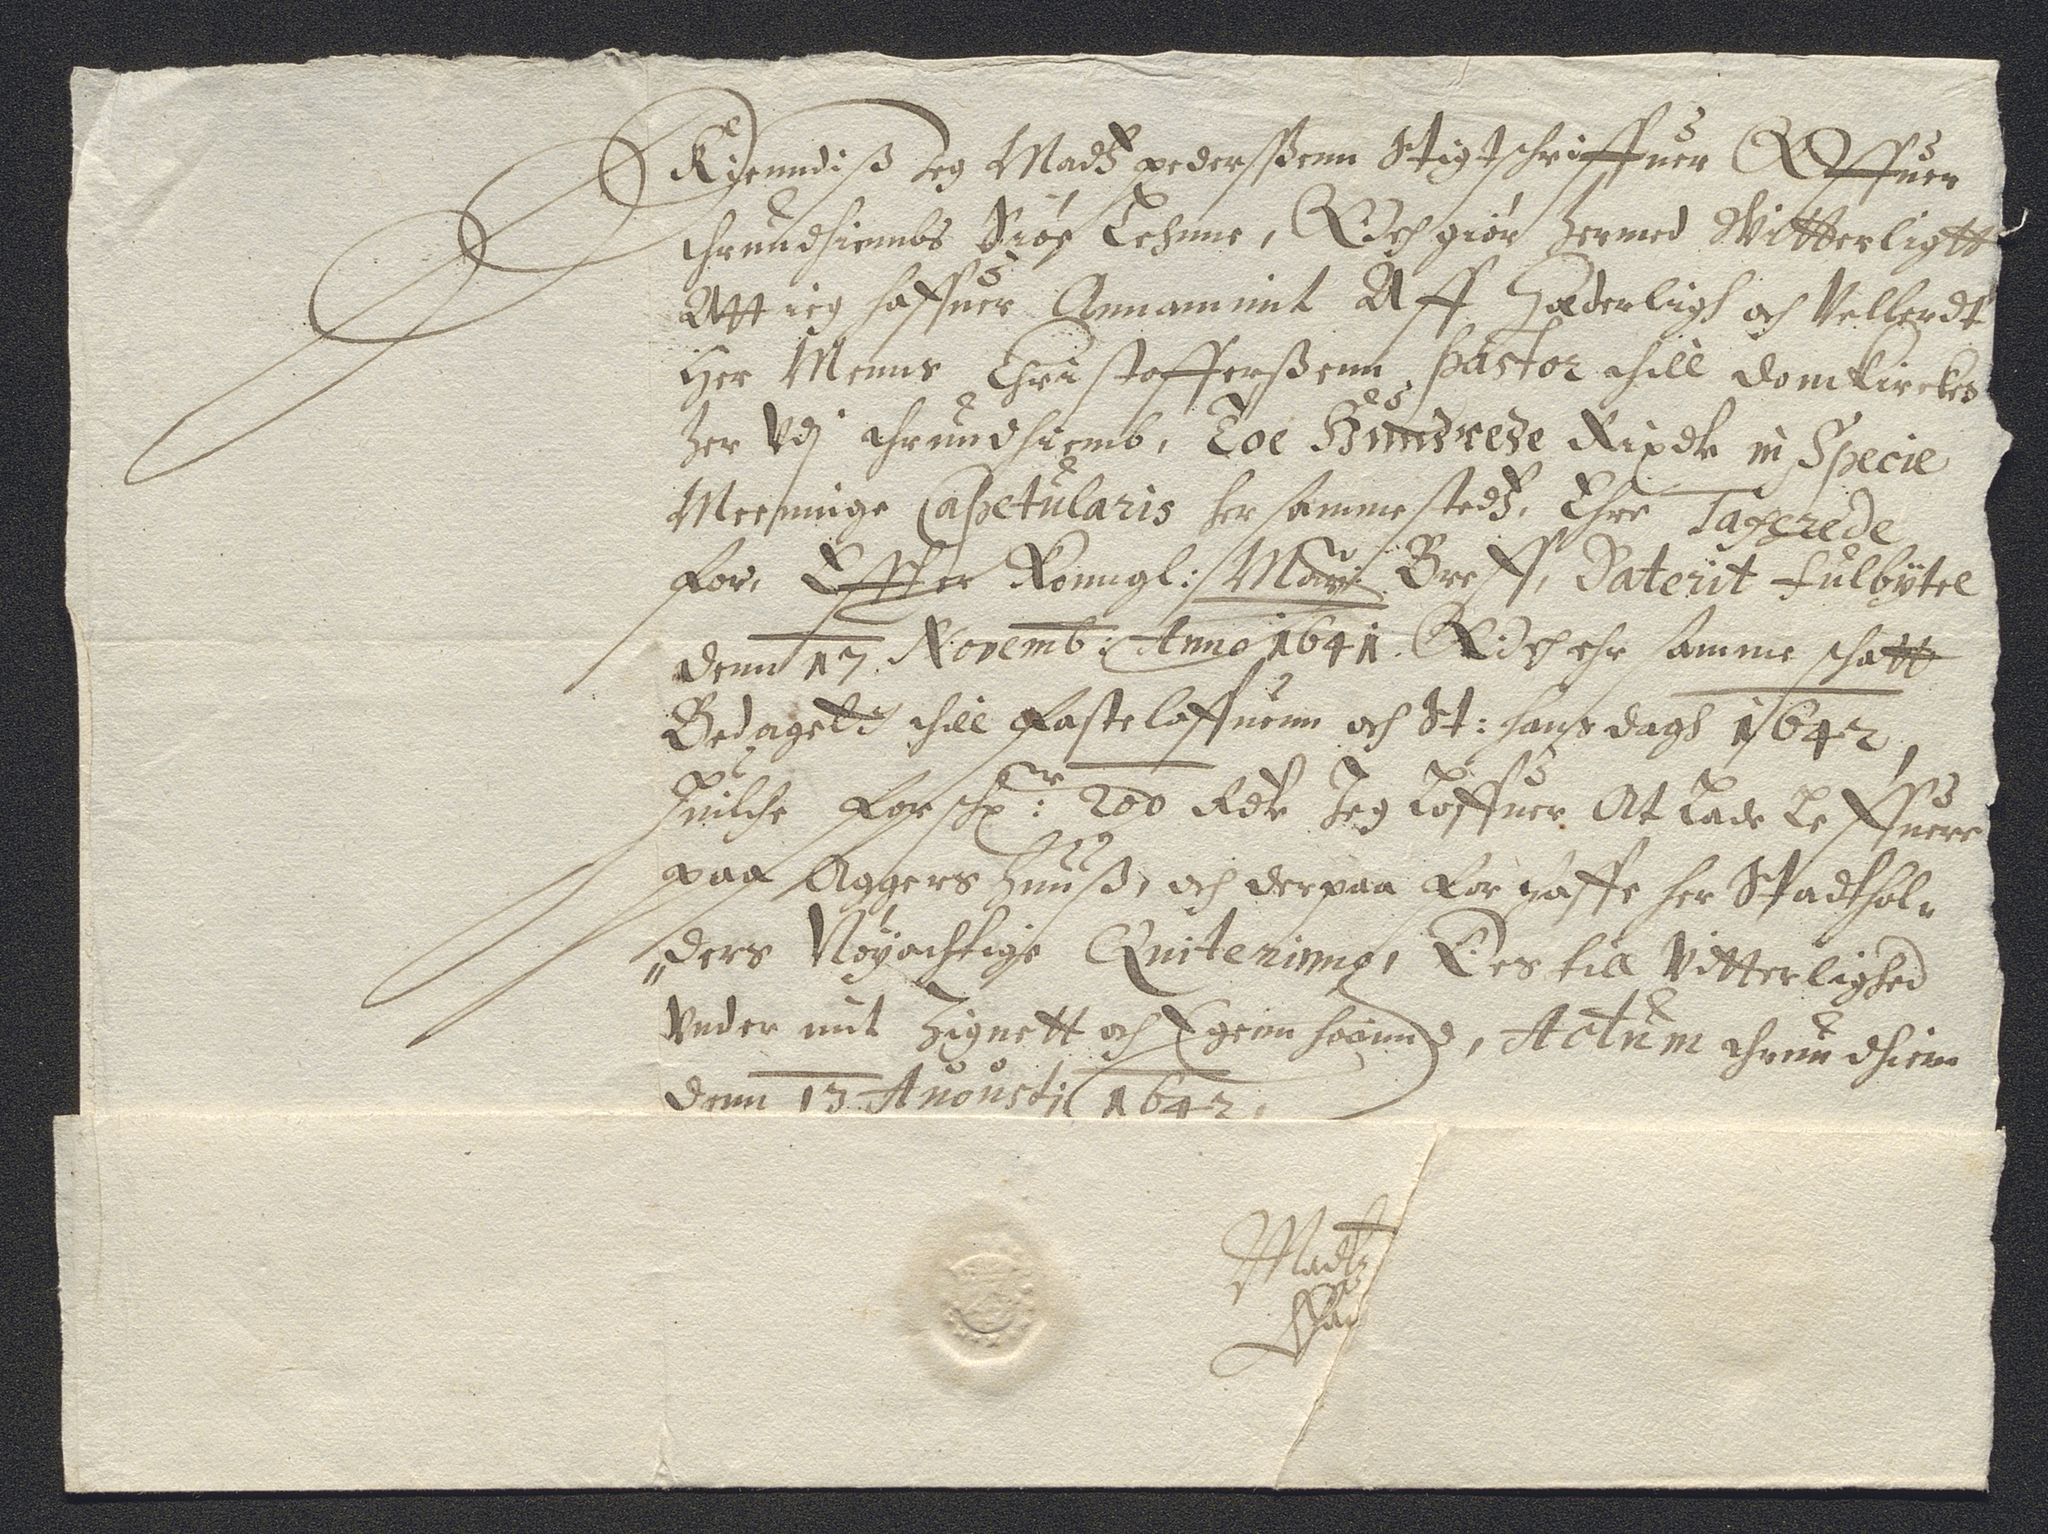 Kiendiß Jeg Madtz pederßenn Stigtschriffuer Offuer
thrundhiembs Siøe Lehnne, Och giør hermed Witterligtt
Att ieg haffuer Annammit Aff Hæderligh och Vellerdt
Her Menns Christofferßenn, pastor thill domkircken
her Vdj thrundhiemb, Toe Hundrede Rixdlr in Specie
Meennige Capetularis her sammestedtz, Ehre Taxerede
for, Effter Konngl: Maÿ: Breff, Daterit fulbÿtel
denn 17 Novemb: Anno 1641. Och ehr samme schatt
Bedageld thill fasteloffuenn och St: hansdagh 1642,
huilche forschr: 200 Rdlr Jeg Loffuer At Lade Leffuere
paa Aggershuuß, och derpaa forschaffe her Stadthol„
„ders Nøÿachtige Quitering, Des till Vitterlighed
Vnder mit Zignett och Egenn haannd, Actum thrundhiem
denn 13 Augustij 1642,
Madtz